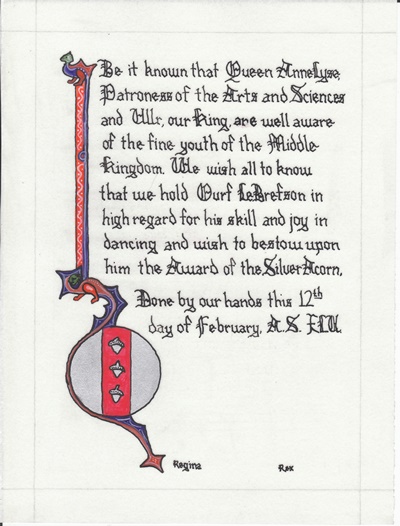 Be it known that Queen AnneLyse,
Patroness of the Arts and Sciences
and Ullr, our King, are well aware
of the fine youth of the Middle
Kingdom. We wish all to know
that we hold in
high regard for his skill and joy in
dancing and wish to bestow upon
him the Award of the Silver Acorn.
Done by our hands this 12th
day of February, A.S. XLV.
Regina Rex